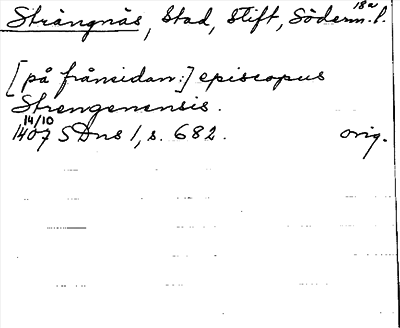 Strängnäs, Stad, Stift, Söderm. l. 18a
[på frånsidan:] episcopus
Strengenensis.
14/10
1407 SDns 1, s. 682. orig.